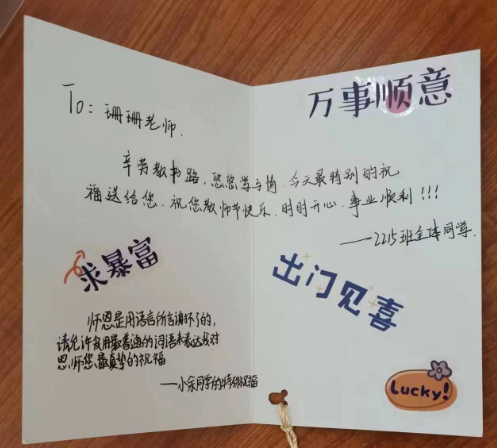 To: 珊珊老师.
万事顺意
辛劳教书路,悠悠学子情.今天最特别的祝
福送给您.祝您教师节快乐.时时开心.事业顺利!!!
——2215班全体同学.
求暴富
出门见喜
师恩是用语言所言谢不了的,
请允许我用最普通的词语来表达我对
恩师您最真挚的祝福
——小余同学的特别祝福
Lucky!